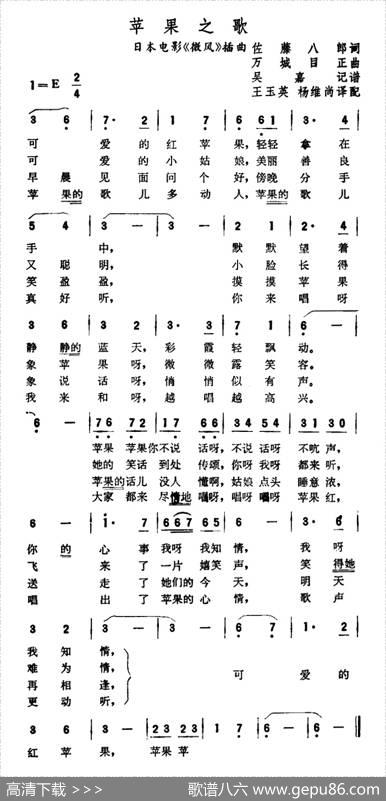 苹果之歌
日本电影《微风》插曲
佐藤八郎词
万城目正曲
吴嘉记谱
王玉英 杨维尚译配
1=E 2/4
3 6 | 7· 2 | 1 7 | 6 1 | 3· 4 |
可爱的红苹果,轻轻拿在
可爱的小姑娘,美丽善良
早晨见面问个好,傍晚分手
苹果的歌儿多动人,苹果的歌儿
5 4 | 3 — | 3 — | 3 1 | 2· 4 |
手中, 默默望着
又聪明, 小脸长得
笑盈盈, 摸摸苹果
真好听, 你来唱呀
静静的蓝天,彩霞轻飘动。
象苹果呀,微微露笑容。
象说话呀,悄悄似有声。
我来和呀,越唱越高兴。
6 — | 76 72 | 17 76 | 54 34 | 31 30 |
苹果苹果你不说话呀,不说话呀不吭声,
她的笑话到处传颂,你呀我呀都来听,
苹果的话儿没人懂啊,姑娘点头睡意浓,
大家都来尽情地唱呀,唱呀唱呀苹果红,
6 — | 1· 7 | 667 65 | 6 — | 3· 6 |
你的心事我呀我知情,我呀
飞来了一片嬉笑声,笑得她
送走了她们的今天,明天
唱出了苹果的心情,歌声
我知情,
难为情,
再相逢,
更动听,
可爱的
红苹果,苹果苹
高清下载 >>>>
歌谱八六 www.gepu86.com